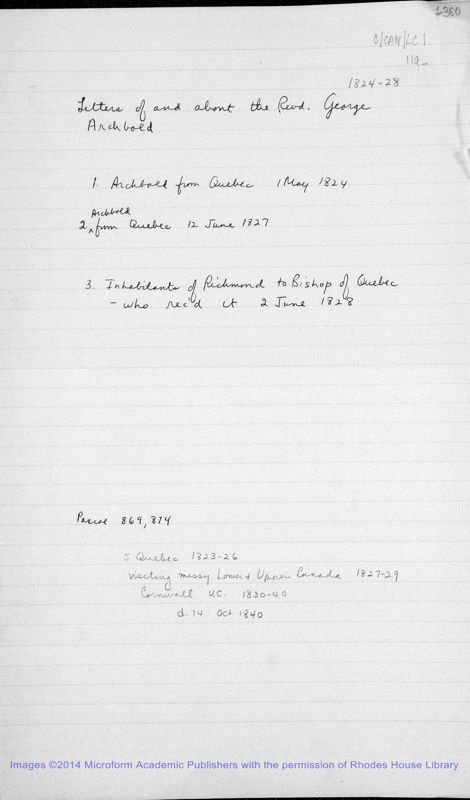 1-360
C/CAN/LC 1
119-
1824-28
Letters of and about the Revd. George
Archbold
1. Archbold from Quebec 1 May 1824
Archbold
2. ^ from Quebec 12 June 1827
3. Inhabitants of Richmond to Bishop of Quebec
- who rec'd it 2 June 1828
Pascoe 869, 874
S Quebec 1823-26
visiting missy Lower & Upper Canada 1827-29
Cornwall U.C. 1830-40
d. 14 Oct 1840
Images ©2014 Microform Academic Publishers with the permission of Rhodes House Library